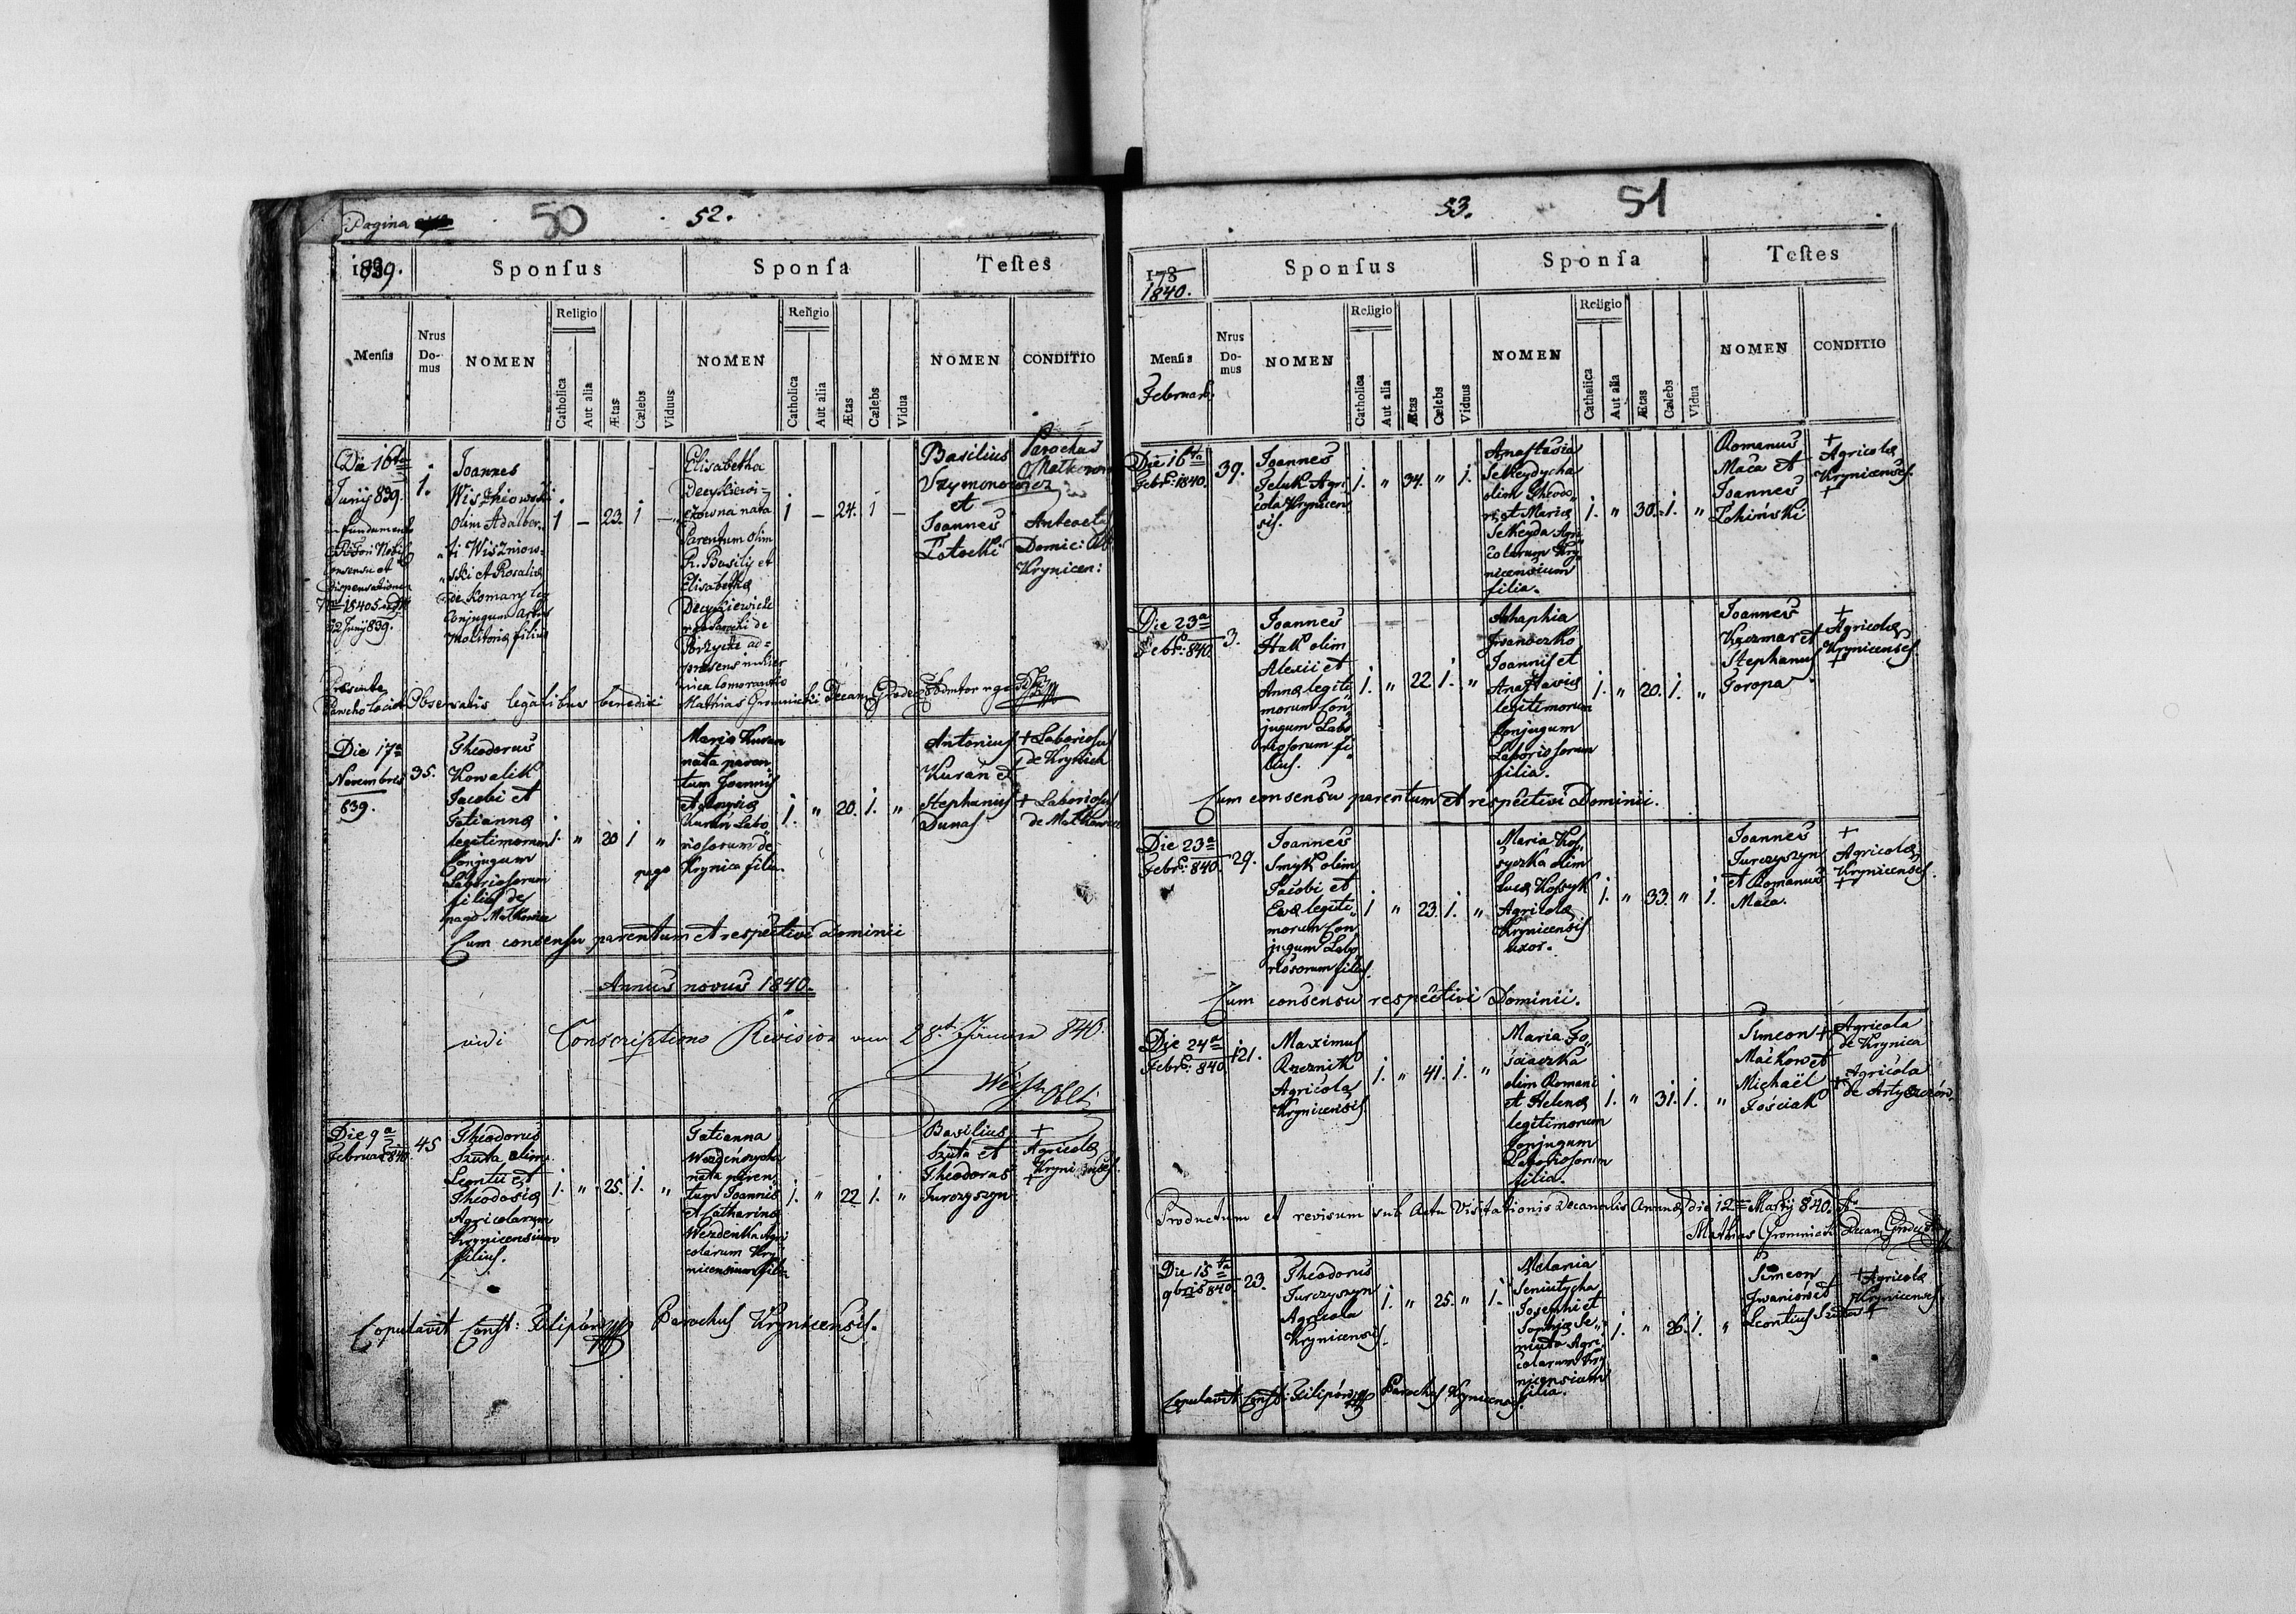 Pagina
50
52.
1839.
Sponsus
Sponsa
Testes
Mensis
Nrus Do-mus
NOMEN
Religio
Catholica
Aut alia
Ætas
Cælebs
Viduus
NOMEN
Religio
Catholica
Aut alia
Ætas
Cælebs
Vidua
NOMEN
CONDITIO
Die 16ta
Junij 839.
Consensu et
Dispensatione
22 Junij 839.
1.
Joannes
Wiszniowski
olim Adalber-
ti Wiszniow-
ski et Rosaliæ
de Komary
Conjugum
filius
1 – 23. 1 –
Elisabetha
Decykiewi-
czowna nata
Parentum olim
R. Basilij et
Elisabethæ
1 – 24. 1 –
Basilius
Uzymonowicz
et
Joannes
Potocki
Parochus
Krynicen:
Observatis legalibus benedixi Mathias Gromnicki Decan:
Die 17a
Novembris
839.
35.
Theodorus
Kowalik
Jacobi et
Tatianna
legitimorum
Conjugum
Laboriosorum
filius de
pago Malkowice
1. " 20 1 "
Maria Kuran
nata paren
tum Joannis
Kurán Labo
riosorum de
pago Krynica filia.
1. " 20. 1. "
Antonius
Kurán et
Stephanus
Dunas
+ Laboriosus
de Krynica
+ Laboriosus
de Malkowice
Cum consensu parentum et respectivi Dominii
Annus novus 1840.
vidi Conscriptions Revision am 28ten Jänner 840.
Die 9a
Februar 840
45
Theodorus
Szuta olim
Leontii et
Theodosiæ
Agricolarum
Krynicensium
filius.
1. " 25. 1. "
Tatianna
nata paren
tum Joannis
et Catharinæ
colarum Kry
nicensium filia
1. " 22 1. "
Basilius
Szuta et
Theodorus
Jurczyszyn
+
Agricolæ
Krynicenses.
+
Copulavit Const: Filipów Parochus Krynicensis.
53.
51
178
1840.
Sponsus
Sponsa
Testes
Mensis
Februar:
Nrus Do-mus
NOMEN
Religio
Catholica
Aut alia
Ætas
Cælebs
Viduus
NOMEN
Religio
Catholica
Aut alia
Ætas
Cælebs
Vidua
NOMEN
CONDITIO
Die 16ta
Febr: 1840.
39.
Joannes
Feluk Agri
cola Krynicen
sis.
1. " 34. " 1.
Anastasia
olim Theodo
ri et Mariæ
Agri
colarum Kry
nicensium
filia.
1. " 30. 1. "
Romanus
Maca et
Joannes
+
Agricolæ
Krynicenses.
+
Die 23a
Febr: 840.
3.
Joannes
Hak olim
Alexii et
Annæ legiti
morum Con
jugum Labo
riosorum fi
lius.
1. " 22 1. "
Ahaphia
Iwanoczko
Joannis et
Anastasiæ
legitimorum
Conjugum
Laboriosorum
filia.
1. " 20. 1. "
Joannes
Kczmar et
Stephanus
Toropa
+
Agricolæ
Krynicenses.
+
Cum consensu parentum et respectivi Dominii.
Die 23a
Febr: 840.
29.
Joannes
Smyk olim
Jacobi et
Evæ legiti
morum Con
jugum Labo
riosorum filius.
1 " 23. 1. "
Maria Kos
syczka olim
Lucæ Kossyk
Agricolæ
Krynicensis
uxor.
1. " 33. " 1.
Joannes
Jurczyszyn
et Romanus
Maca.
+
Agricolæ
Krynicenses.
+
Cum consensu respectivi Dominii.
Die 24a
Febr: 840
21.
Maximus
Rzeznik
Agricola
Krynicensis.
1. " 41. 1. "
Maria Fo
sciaczka
olim Romani
et Helenæ
legitimorum
Conjugum
Laboriosorum
filia.
1. " 31. 1. "
Simeon
Maćkow et
Michaël
Fosciak
+ Agricola
de Krynica
+ Agricola
Productum et revisum sub Actu Visitationis Decanalis Annuæ die 12 Martij 840.
Mathias Gromnicki Decan:
Die 15ta
9bris 840.
23.
Theodorus
Jurczyszyn
Agricola
Krynicensis.
1. " 25. " 1.
Melania
Seniutycha
Josephi et
Sophiæ Se
niuta Agri
colarum Kry
nicensium
filia.
1. " 26. 1. "
Simeon
Iwaniów et
Leontius Szuta
+ Agricolæ
Krynicenses.
+
Copulavit Const: Filipów Parochus Krynicensis.